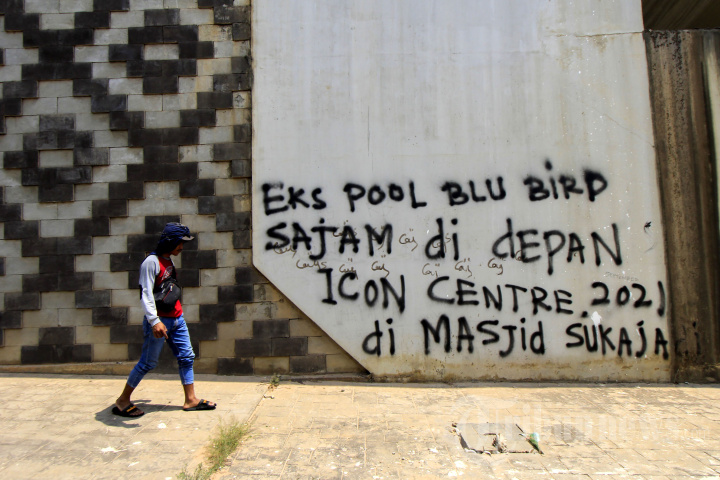 EKS POOL BLU BIRD
SAJAM di dEPAN
ICON CENTRE. 2021
di MASJid SUKAJA